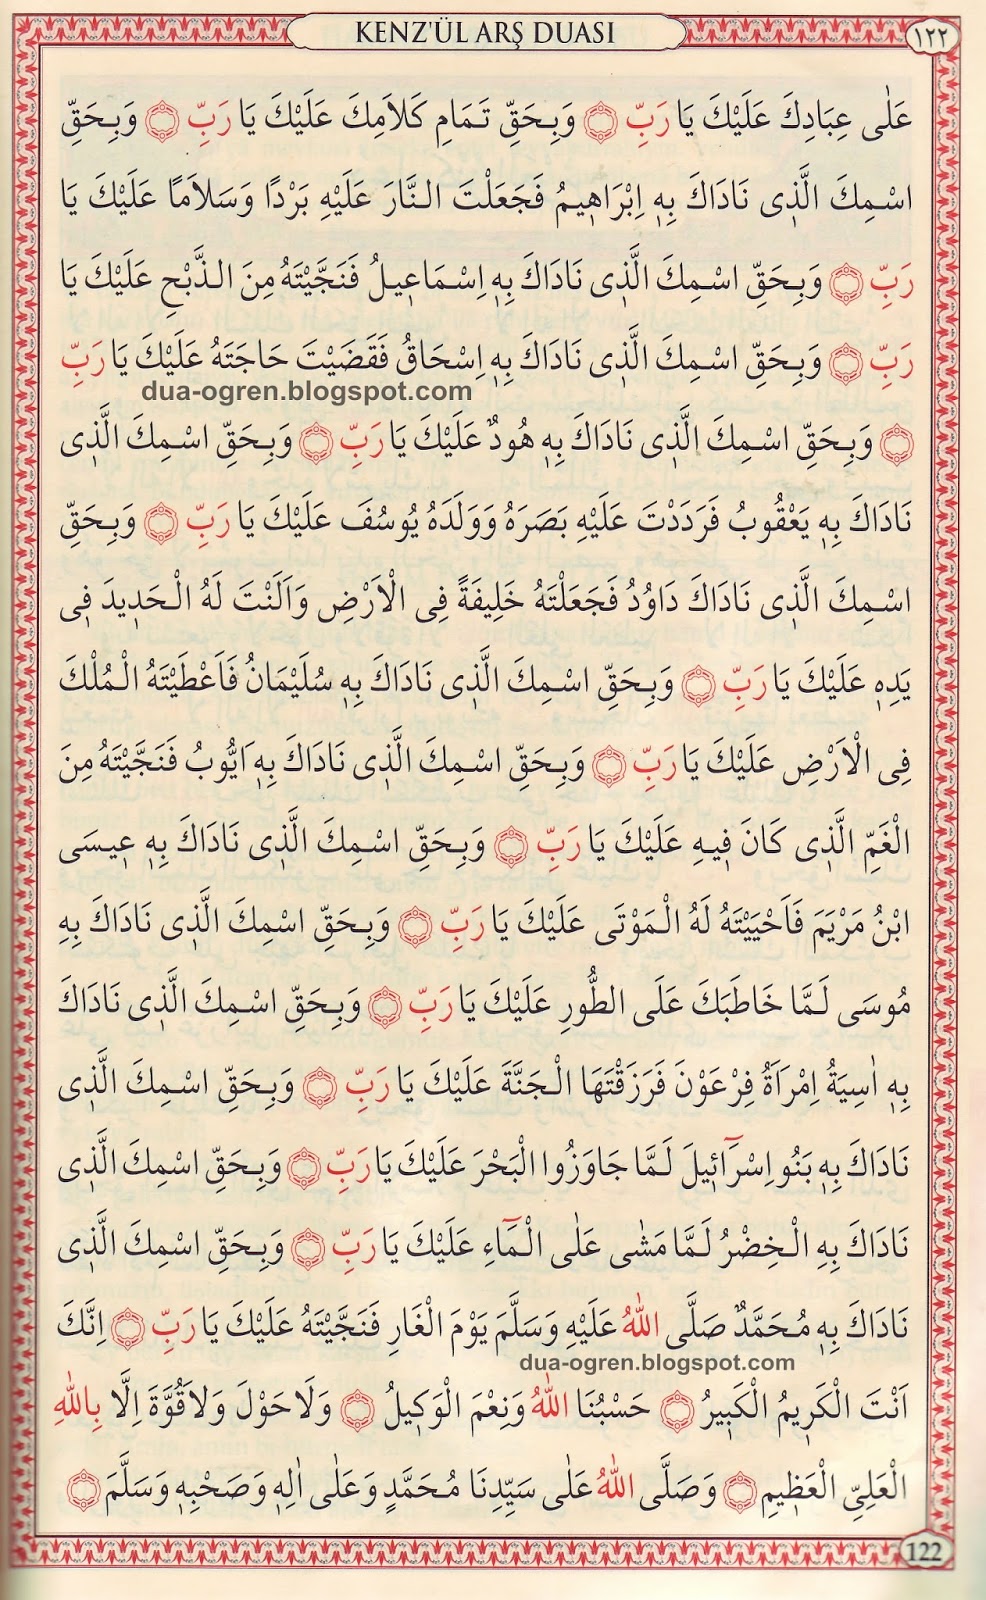 KENZ'ÜL ARŞ DUASI
١٢٢
عَلٰى عِبَادِكَ عَلَيْكَ يَا رَبِّ وَبِحَقِّ تَمَامِ كَلَامِكَ عَلَيْكَ يَا رَبِّ وَبِحَقِّ
اسْمِكَ الَّذِى نَادَاكَ بِهِ اِبْرَاهِيمُ فَجَعَلْتَ النَّارَ عَلَيْهِ بَرْدًا وَسَلَامًا عَلَيْكَ يَا
رَبِّ وَبِحَقِّ اسْمِكَ الَّذِى نَادَاكَ بِهِ اِسْمَاعِيلُ فَنَجَّيْتَهُ مِنَ الذَّبْحِ عَلَيْكَ يَا
رَبِّ وَبِحَقِّ اسْمِكَ الَّذِى نَادَاكَ بِهِ اِسْحَاقُ فَقَضَيْتَ حَاجَتَهُ عَلَيْكَ يَا رَبِّ
dua-ogren.blogspot.com
وَبِحَقِّ اسْمِكَ الَّذِى نَادَاكَ بِهِ هُودٌ عَلَيْكَ يَا رَبِّ وَبِحَقِّ اسْمِكَ الَّذِى
نَادَاكَ بِهِ يَعْقُوبُ فَرَدَدْتَ عَلَيْهِ بَصَرَهُ وَوَلَدَهُ يُوسُفَ عَلَيْكَ يَا رَبِّ وَبِحَقِّ
اسْمِكَ الَّذِى نَادَاكَ دَاوُدُ فَجَعَلْتَهُ خَلِيفَةً فِى الْاَرْضِ وَاَلَنْتَ لَهُ الْحَدِيدَ فِى
يَدِهِ عَلَيْكَ يَا رَبِّ وَبِحَقِّ اسْمِكَ الَّذِى نَادَاكَ بِهِ سُلَيْمَانُ فَاَعْطَيْتَهُ الْمُلْكَ
فِى الْاَرْضِ عَلَيْكَ يَا رَبِّ وَبِحَقِّ اسْمِكَ الَّذِى نَادَاكَ بِهِ اَيُّوبُ فَنَجَّيْتَهُ مِنَ
الْغَمِّ الَّذِى كَانَ فِيهِ عَلَيْكَ يَا رَبِّ وَبِحَقِّ اسْمِكَ الَّذِى نَادَاكَ بِهِ عِيسَى
ابْنُ مَرْيَمَ فَاَحْيَيْتَهُ لَهُ الْمَوْتَى عَلَيْكَ يَا رَبِّ وَبِحَقِّ اسْمِكَ الَّذِى نَادَاكَ بِهِ
مُوسَى لَمَّا خَاطَبَكَ عَلَى الطُّورِ عَلَيْكَ يَا رَبِّ وَبِحَقِّ اسْمِكَ الَّذِى نَادَاكَ
بِهِ اٰسِيَةُ اِمْرَاَةُ فِرْعَوْنَ فَرَزَقْتَهَا الْجَنَّةَ عَلَيْكَ يَا رَبِّ وَبِحَقِّ اسْمِكَ الَّذِى
نَادَاكَ بِهِ بَنُو اِسْرَآئِيلَ لَمَّا جَاوَزُوا الْبَحْرَ عَلَيْكَ يَا رَبِّ وَبِحَقِّ اسْمِكَ الَّذِى
نَادَاكَ بِهِ الْخِضْرُ لَمَّا مَشٰى عَلٰى الْمَآءِ عَلَيْكَ يَا رَبِّ وَبِحَقِّ اسْمِكَ الَّذِى
نَادَاكَ بِهِ مُحَمَّدٌ صَلَّى اللّٰهُ عَلَيْهِ وَسَلَّمَ يَوْمَ الْغَارِ فَنَجَّيْتَهُ عَلَيْكَ يَا رَبِّ اِنَّكَ
dua-ogren.blogspot.com
اَنْتَ الْكَرِيمُ الْكَبِيرُ حَسْبُنَا اللّٰهُ وَنِعْمَ الْوَكِيلُ وَلَا حَوْلَ وَلَا قُوَّةَ اِلَّا بِاللّٰهِ
الْعَلِىِّ الْعَظِيمِ وَصَلَّى اللّٰهُ عَلٰى سَيِّدِنَا مُحَمَّدٍ وَعَلٰى اٰلِهِ وَصَحْبِهِ وَسَلَّمَ
122